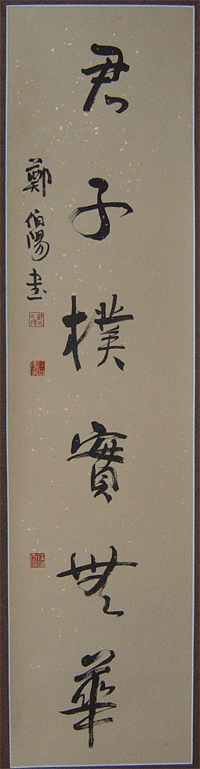 君子樸實無華
鄭伯陽書